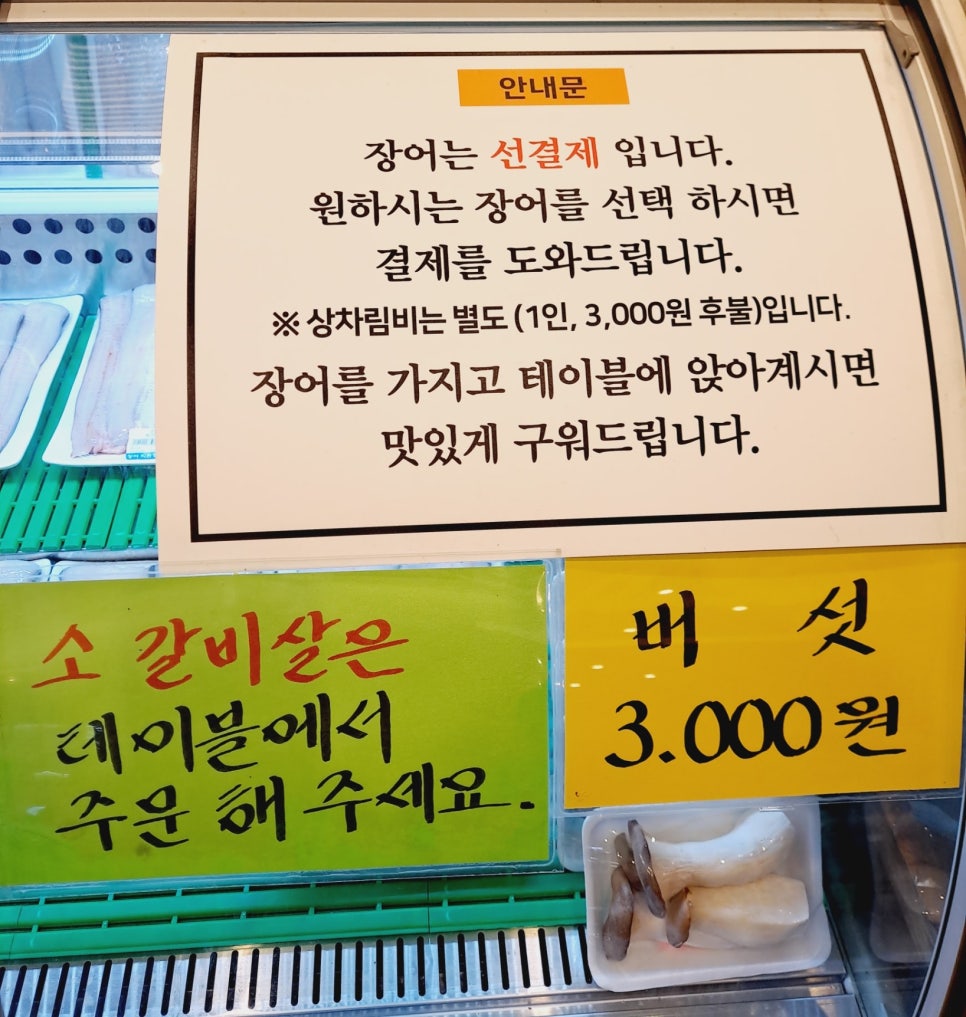 안내문
장어는 선결제 입니다.
원하시는 장어를 선택 하시면
결제를 도와드립니다.
※ 상차림비는 별도 (1인, 3,000원 후불)입니다.
장어를 가지고 테이블에 앉아계시면
맛있게 구워드립니다.
소 갈비살은
테이블에서
주문 해 주세요.
버 섯
3.000원